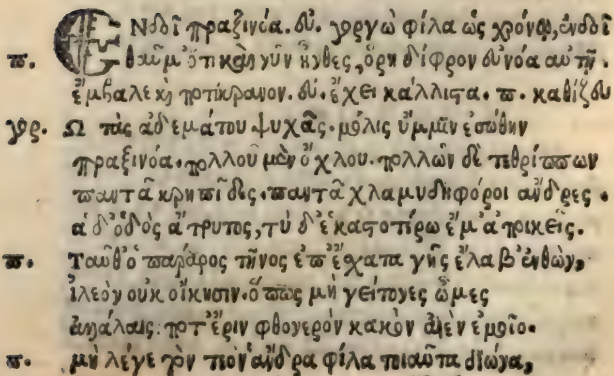 Ενδοῖ πραξινόα. δύ. γοργὼ φίλα ὡς χρόνῳ, ἐνδοῖ
π. θαῦμ' ὅτι καὶ νῦν ἤνθες, ὅρη δίφρον δυνόα αὐτῇ.
ἔμβαλε κὴ ποτίκρανον. δύ. ἔχει κάλλιστα. π. καθίζδυ
γόρ. Ω τᾶς ἀδεμάτου ψυχᾶς. μόλις ὔμμιν ἐσώθην
πραξινόα. πολλοῦ μὲν ὄχλου. πολλῶν δὲ τεθρίππων
παντᾶ κρηπῖδες. παντᾶ χλαμυδηφόροι ἄνδρες.
ἁ δ' ὁδὸς ἄτρυτος, τὺ δ' ἑκαστοτέρω ἔμ' ἀ
π. Ταῦθ' ὁ πάραρος τῆνος ἐπ' ἔσχατα γῆς ἔλαβ' ἐνθὼν,
ἰλεὸν οὐκ οἴκησιν. ὅπως μὴ γείτονες ὦμες
ἀλλάλαις: ποτ' ἔριν φθονερὸν κακὸν αἰὲν ἐμοῖο.
π. μὴ λέγε τὸν τεὸν ἄνδρα φίλα τοιαῦτα δίωνα,